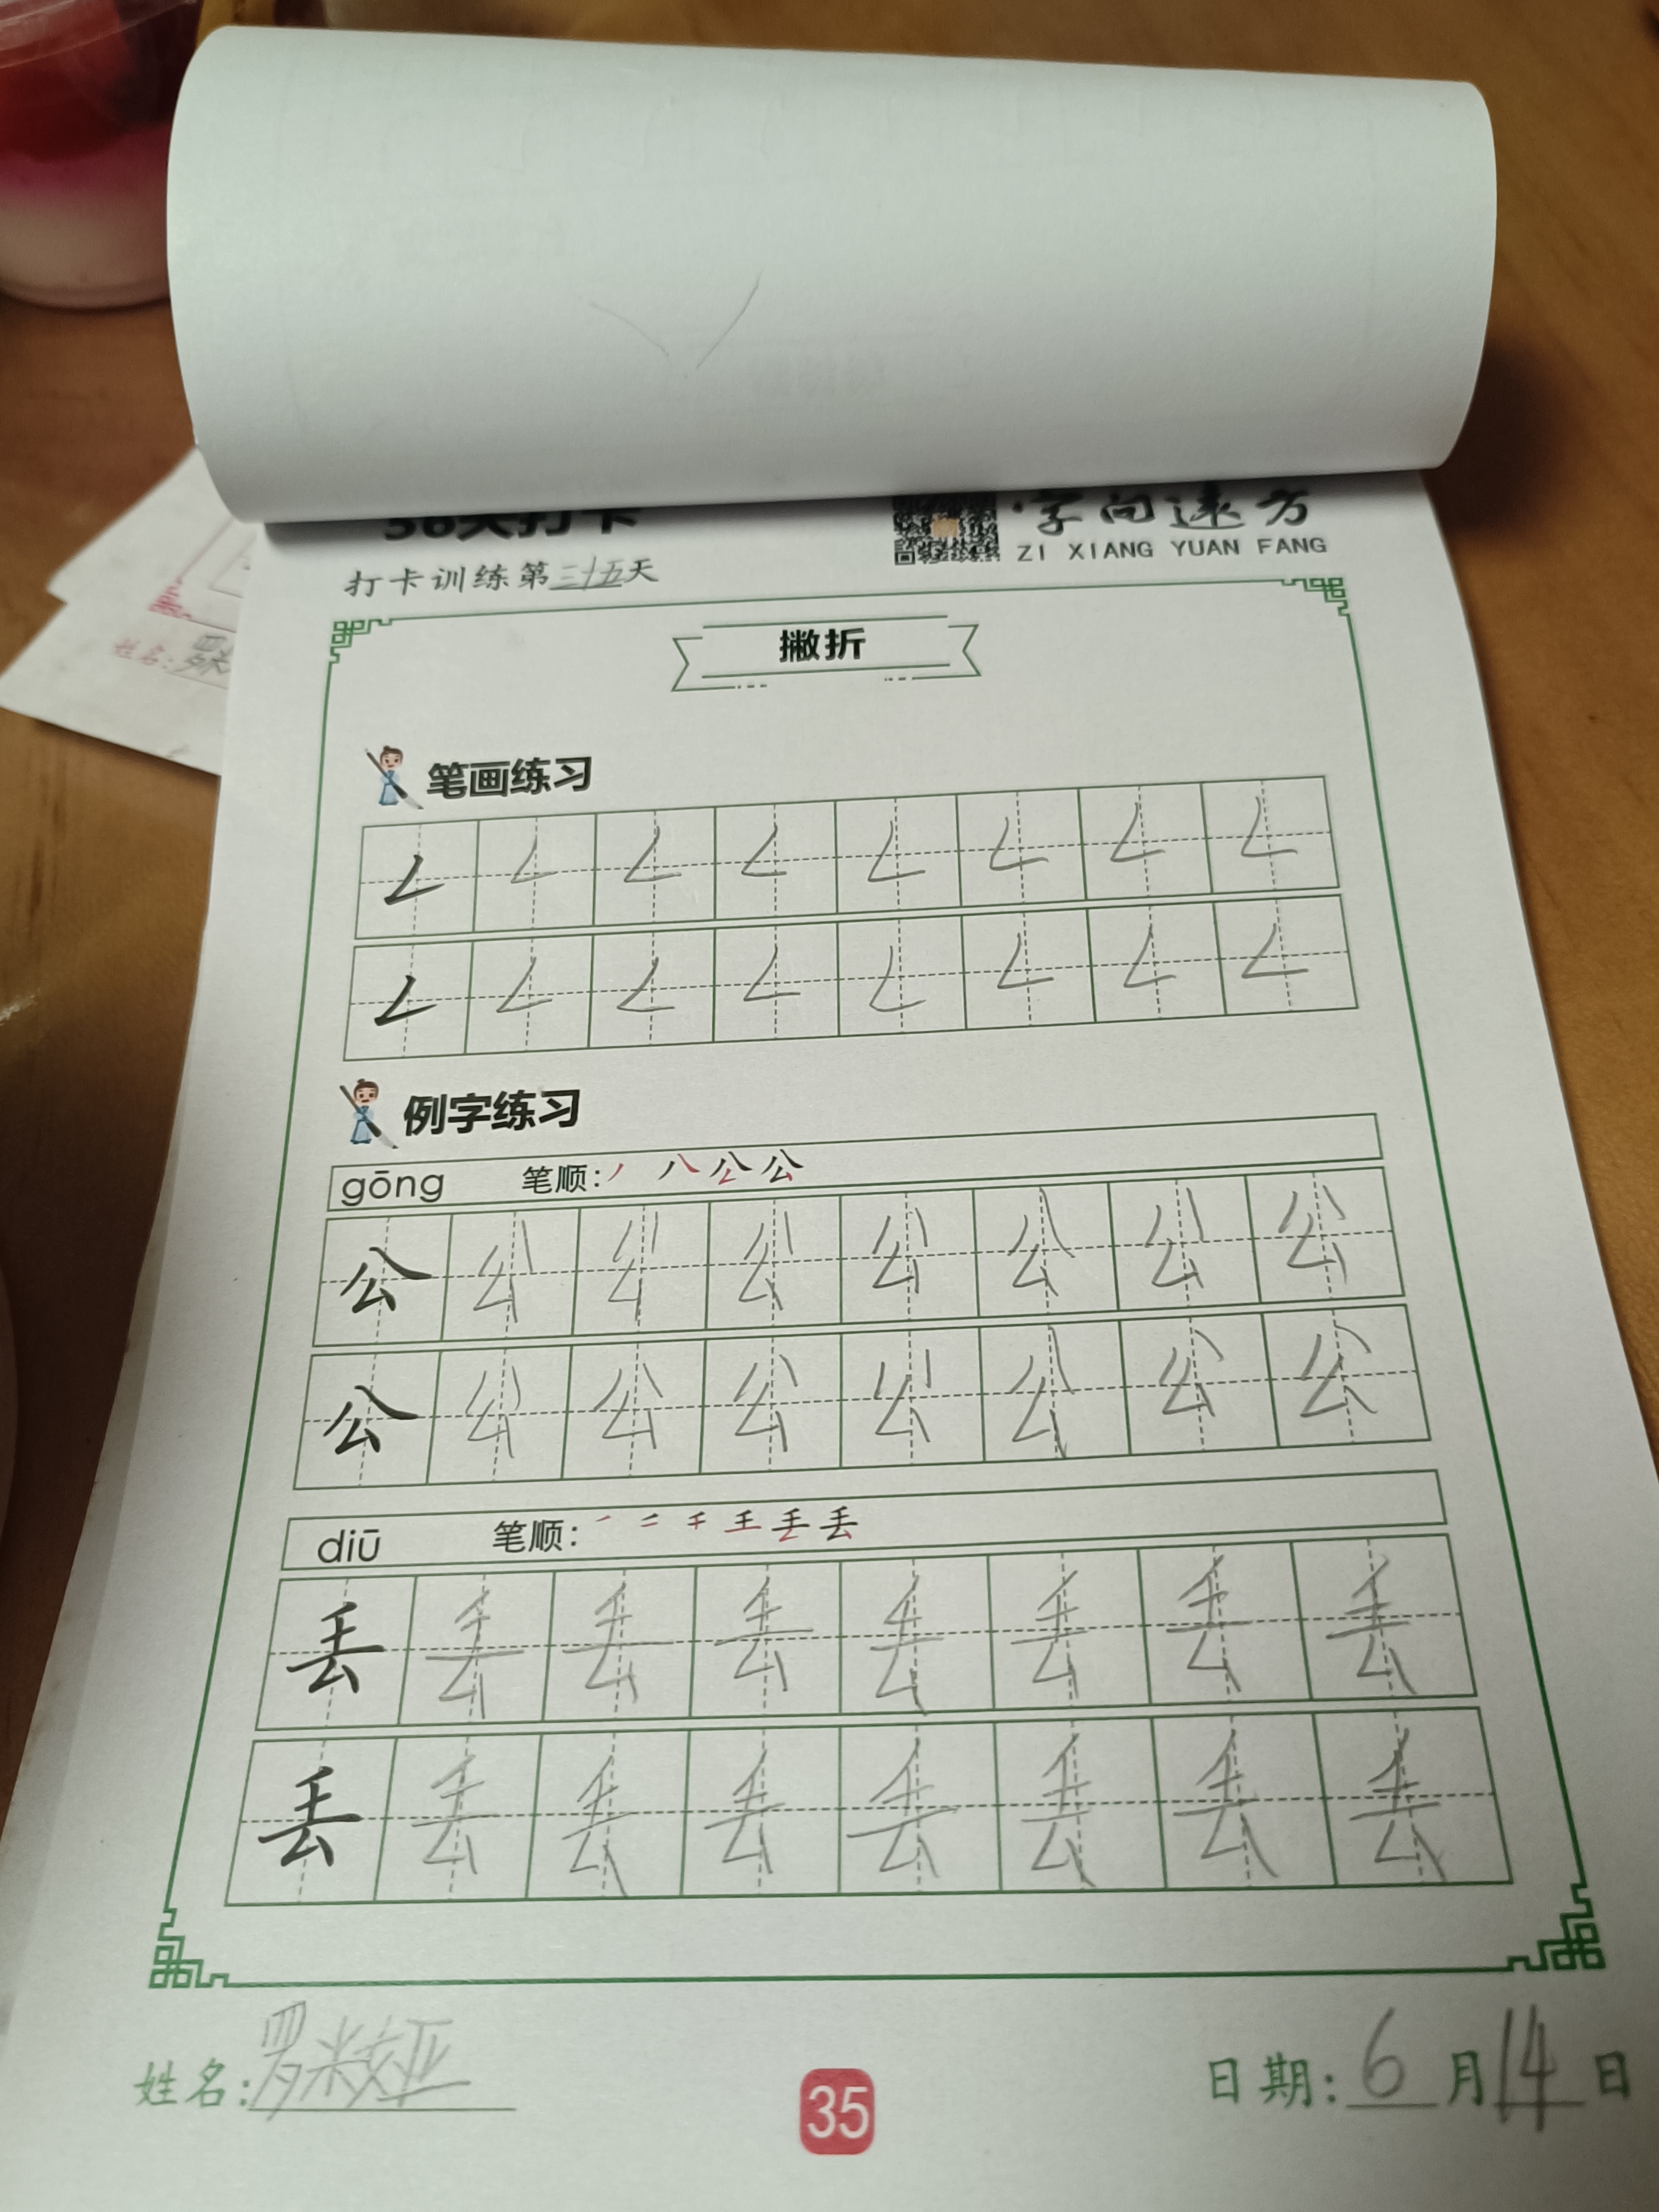 36天打卡
字向远方
ZI XIANG YUAN FANG
打卡训练第三十五天
撇折
笔画练习
𠃋 𠃋 𠃋 𠃋 𠃋 𠃋 𠃋 𠃋
𠃋 𠃋 𠃋 𠃋 𠃋 𠃋 𠃋 𠃋
例字练习
gōng 笔顺:
公 公 公 公 公 公 公 公
公 公 公 公 公 公 公 公
diū 笔顺:
丢 丢 丢 丢 丢 丢 丢 丢
丢 丢 丢 丢 丢 丢 丢 丢
姓名:罗米娅
35
日期:6月14日
姓名:罗米